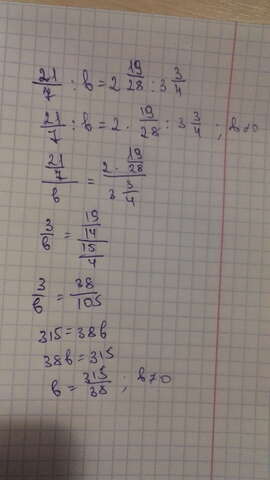 21/7 : b = 2 19/28 : 3 3/4
21/7 : b = 2 · 19/28 : 3 3/4 ; b≠0
(21/7)/b = (2 · 19/28)/(3 3/4)
3/b = (19/14)/(15/4)
3/b = 38/105
315 = 38b
38b = 315
b = 315/38 ; b≠0